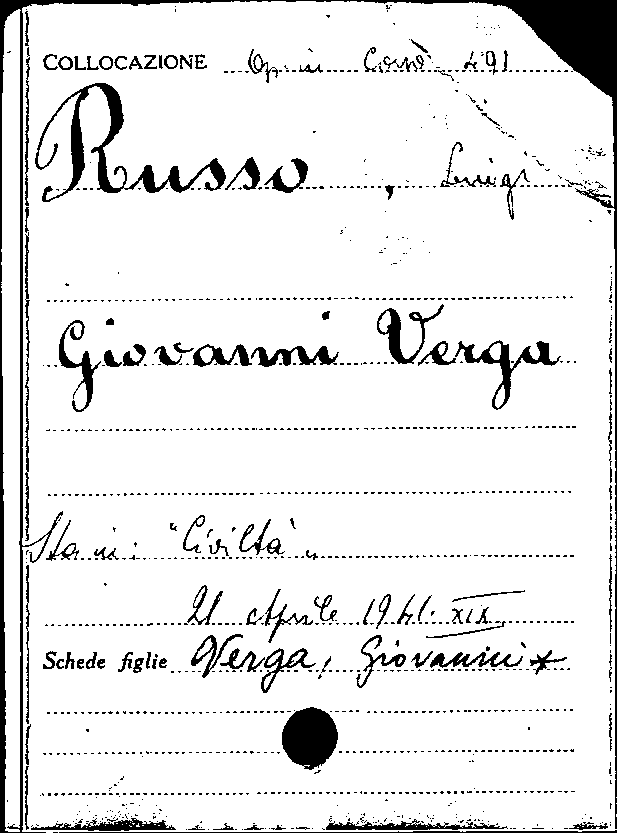 COLLOCAZIONE Op. in Cons 491
Russo, Luigi
Giovanni Verga
Sta in: "Civiltà"
21 Aprile 1941. XIX
Schede figlie Verga, Giovanni *